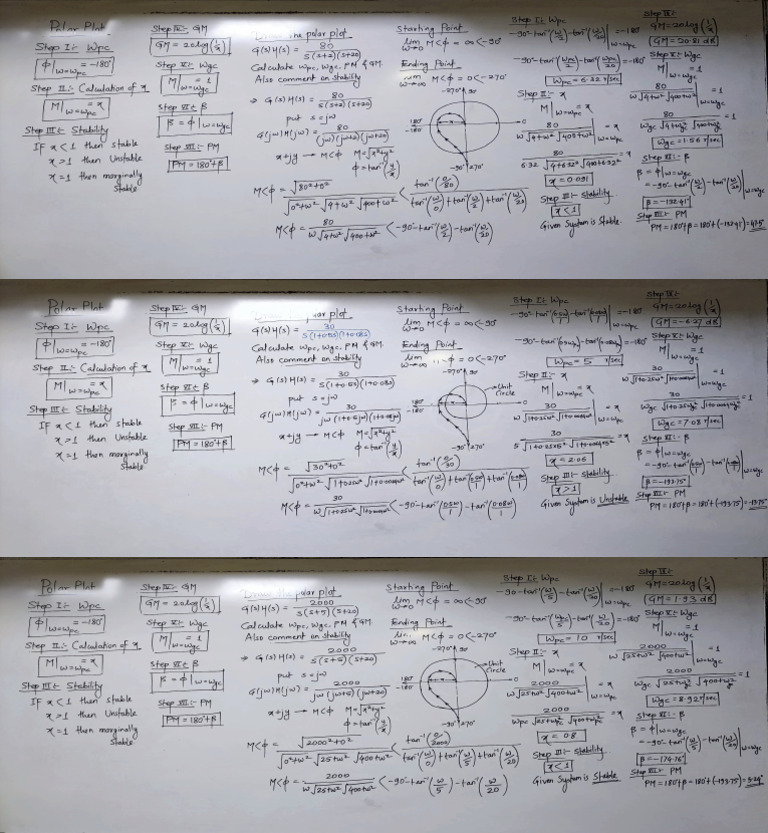 Polar Plot
Step I:- Wpc
ϕ|w=wpc = -180°
Step II:- Calculation of x
M|w=wpc = x
Step III:- Stability
If x<1 then stable
x>1 then Unstable
x=1 then marginally
Stable
Step IV:- GM
GM = 20log(1/x)
Step V:- Wgc
M|w=wgc = 1
Step VI:- β
β = ϕ|w=wgc
Step VII:- PM
PM = 180°+β
the polar plot
G(s)H(s) = 80/s(s+2)(s+20)
Calculate Wpc, Wgc, PM & GM.
Also comment on stability
⇒ G(s)H(s) = 80/s(s+2)(s+20)
put s=jw
G(jw)H(jw) = 80/(jw)(jw+2)(jw+20)
x+jy → M<ϕ M=√x²+y²
ϕ=tan⁻¹(y/x)
M<ϕ = √80²+0²/√0²+w² √4+w² √400+w² < tan⁻¹(0/80)/tan⁻¹(w/0)+tan⁻¹(w/2)+tan⁻¹(w/20)
M<ϕ = 80/w√4+w² √400+w² <-90°-tan⁻¹(w/2)-tan⁻¹(w/20)
Starting Point
lim w→0 M<ϕ = ∞<-90°
Ending Point
lim w→∞ M<ϕ = 0<-270°
-270° 90°
180°
-180°
0
-90° 270°
Step I:- Wpc
-90°-tan⁻¹(w/2)-tan⁻¹(w/20)|w=wpc = -180
-90°-tan⁻¹(wpc/2)-tan⁻¹(wpc/20) = -180°
Wpc = 6.32 r/sec
Step II:- x
M|w=wpc = x
80/w√4+w² √400+w²|w=wpc = x
80/6.32 √4+6.32² √400+6.32² = x
x = 0.091
Step III:- Stability
x<1
Given System is Stable.
GM=20log(1/x)
GM = 20.81 dB
Step V:- Wgc
M|w=wgc = 1
80/w√4+w² √400+w² = 1
80/wgc √4+wg² √400+wg² = 1
Wgc = 1.56 r/sec
Step VI:- β
β = ϕ|w=wgc
= -90°-tan⁻¹(w/2)-tan⁻¹(w/20)|w=wgc
β = -132.41°
Step VII:- PM
PM = 180°+β = 180°+(-132.41) = 47.5°
Polar Plot
Step I:- Wpc
ϕ|w=wpc = -180°
Step II:- Calculation of x
M|w=wpc = x
Step III:- Stability
If x<1 then stable
x>1 then Unstable
x=1 then marginally
Stable
Step IV:- GM
GM = 20log(1/x)
Step V:- Wgc
M|w=wgc = 1
Step VI:- β
β = ϕ|w=wgc
Step VII:- PM
PM = 180°+β
polar plot
G(s)H(s) = 30/s(1+0.5s)(1+0.08s)
Calculate Wpc, Wgc, PM & GM.
Also comment on stability
⇒ G(s)H(s) = 30/s(1+0.5s)(1+0.08s)
put s=jw
G(jw)H(jw) = 30/jw(1+0.5jw)(1+0.08jw)
x+jy → M<ϕ M=√x²+y²
ϕ=tan⁻¹(y/x)
Starting Point
lim w→0 M<ϕ = ∞<-90°
Ending Point
M<ϕ = 0<-270°
-270° 90°
180°
-180°
Unit
Circle
0
-90° 270°
Step I:- Wpc
Wpc = 5 r/sec
Step II:- x
M|w=wpc = x
x = 2.06
Step III:- Stability
x>1
Given System is Unstable
GM=20log(1/x)
GM = -6.27 dB
Step V:- Wgc
M|w=wgc = 1
Wgc = 7.08 r/sec
Step VI:- β
β = ϕ|w=wgc
β = -193.75°
Step VII:- PM
PM = 180°+β = 180°+(-193.75) = -13.75°
Polar Plot
Step I:- Wpc
ϕ|w=wpc = -180°
Step II:- Calculation of x
M|w=wpc = x
Step III:- Stability
If x<1 then stable
x>1 then Unstable
x=1 then marginally
Stable
Step IV:- GM
GM = 20log(1/x)
Step V:- Wgc
M|w=wgc = 1
Step VI:- β
β = ϕ|w=wgc
Step VII:- PM
PM = 180°+β
Draw the polar plot
G(s)H(s) = 2000/s(s+5)(s+20)
Calculate Wpc, Wgc, PM & GM.
Also comment on stability
⇒ G(s)H(s) = 2000/s(s+5)(s+20)
put s=jw
G(jw)H(jw) = 2000/jw(jw+5)(jw+20)
x+jy → M<ϕ M=√x²+y²
ϕ=tan⁻¹(y/x)
M<ϕ = √2000²+0²/√0²+w² √25+w² √400+w² < tan⁻¹(0/2000)/tan⁻¹(w/0)+tan⁻¹(w/5)+tan⁻¹(w/20)
M<ϕ = 2000/w√25+w² √400+w² <-90°-tan⁻¹(w/5)-tan⁻¹(w/20)
Starting Point
lim w→0 M<ϕ = ∞<-90°
Ending Point
M<ϕ = 0<-270°
-270° 90°
180°
-180°
Unit
Circle
0
-90° 270°
Step I:- Wpc
-90-tan⁻¹(w/5)-tan⁻¹(w/20)|w=wpc = -180
-90°-tan⁻¹(wpc/5)-tan⁻¹(wpc/20) = -180°
Wpc = 10 r/sec
Step II:- x
M|w=wpc = x
2000/w√25+w² √400+w²|w=wpc = x
2000/wpc √25+w² √400+w² = x
x = 0.8
Step III:- Stability
x<1
Given System is Stable
GM=20log(1/x)
GM = 1.93 dB
Step V:- Wgc
M|w=wgc = 1
2000/w√25+w² √400+w² = 1
2000/wgc √25+wg² √400+wg² = 1
Wgc = 8.92 r/sec
Step VI:- β
β = ϕ|w=wgc
= -90°-tan⁻¹(w/5)-tan⁻¹(w/20)|w=wgc
β = -174.76°
Step VII:- PM
PM = 180°+β = 180°+(-193.75) = 5.24°